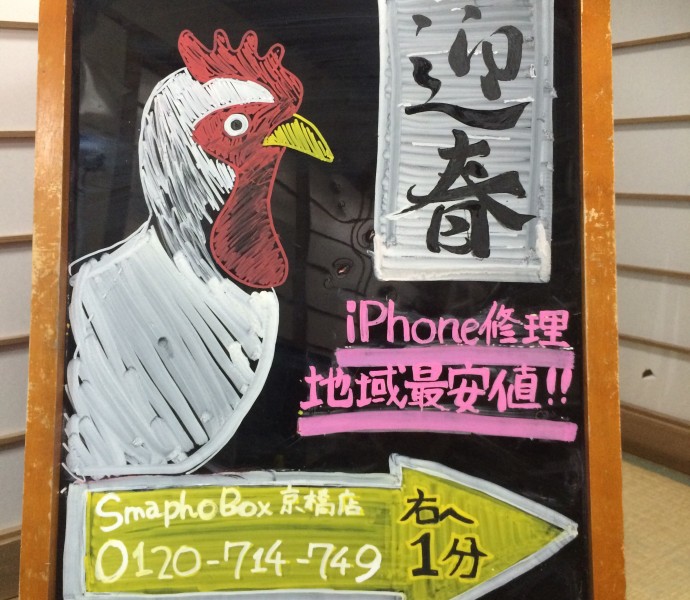 迎春
iPhone修理
地域最安値!!
SmaphoBox京橋店
0120-714-749
右へ
1分